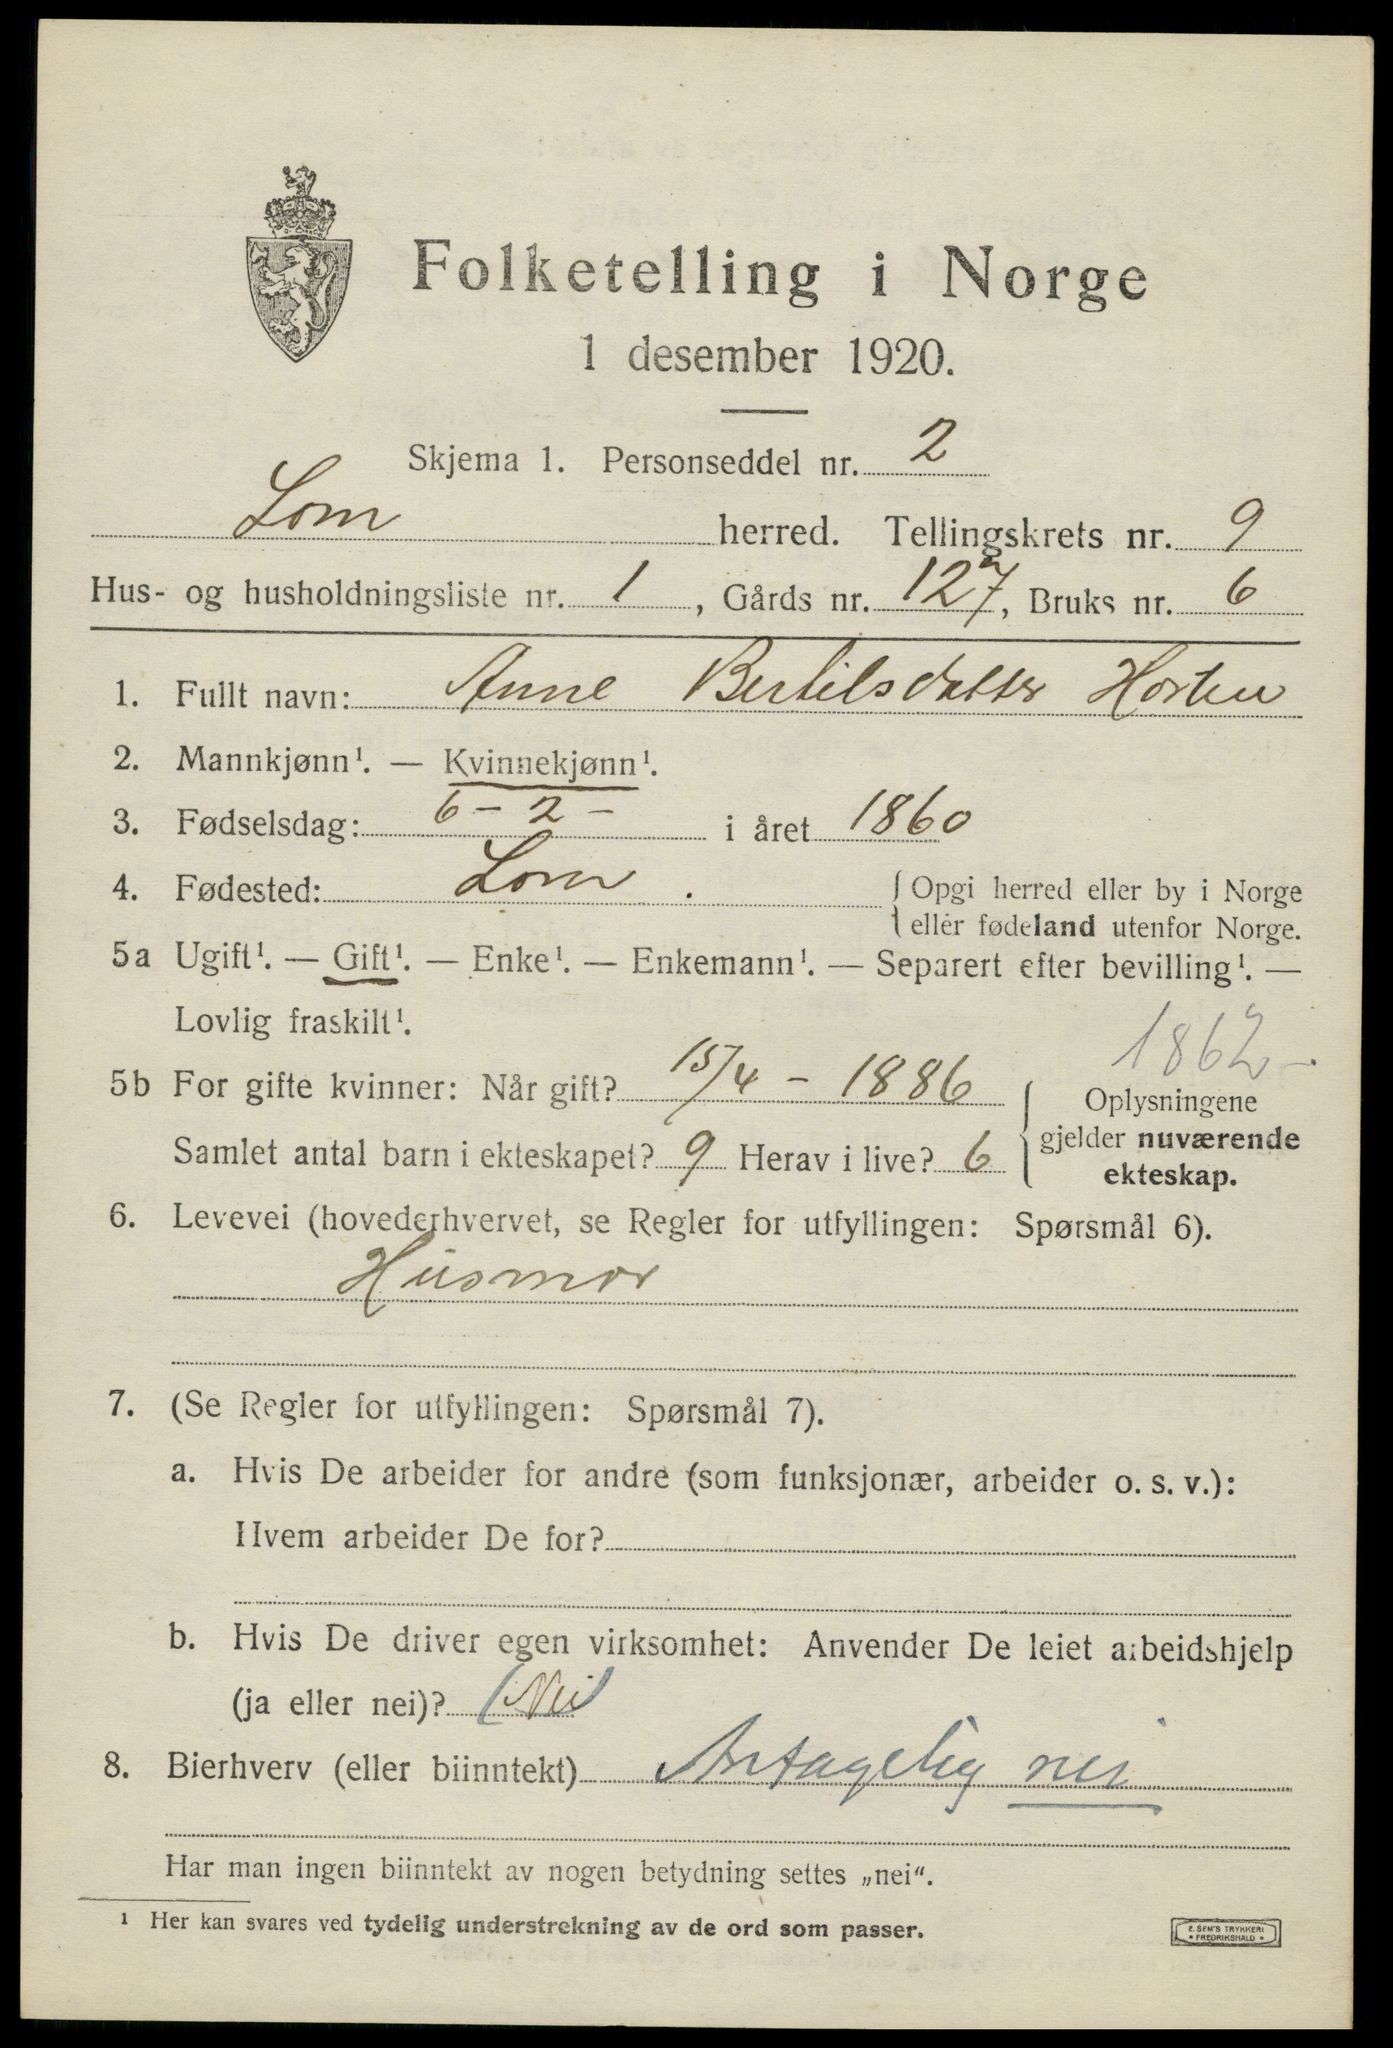 Folketelling i Norge
1 desember 1920.
Skjema 1. Personseddel nr. 2
Lom herred. Tellingskrets nr. 9
Hus- og husholdningsliste nr. 1, Gårds nr. 127, Bruks nr. 6
1. Fullt navn: Anne Bertilsdatter Horten
2. Mannkjønn¹. — Kvinnekjønn¹.
3. Fødselsdag: 6 - 2 - i året 1860
4. Fødested: Lom . { Opgi herred eller by i Norge
eller fødeland utenfor Norge.
5a Ugift¹. — Gift¹. — Enke¹. — Enkemann¹. — Separert efter bevilling¹. —
Lovlig fraskilt¹.
1862 -
5b For gifte kvinner: Når gift? 15/4 - 1886
Samlet antal barn i ekteskapet? 9 Herav i live? 6
Oplysningene
gjelder nuværende
ekteskap.
6. Levevei (hovederhvervet, se Regler for utfyllingen: Spørsmål 6).
Husmor
7. (Se Regler for utfyllingen: Spørsmål 7).
a. Hvis De arbeider for andre (som funksjonær, arbeider o. s. v.):
Hvem arbeider De for?
b. Hvis De driver egen virksomhet: Anvender De leiet arbeidshjelp
(ja eller nei)? (Nei)
8. Bierhverv (eller biinntekt) Antagelig nei
Har man ingen biinntekt av nogen betydning settes „nei“.
¹ Her kan svares ved tydelig understrekning av de ord som passer.
E. SEM'S TRYKKERI
• FREDRIKSHALD •